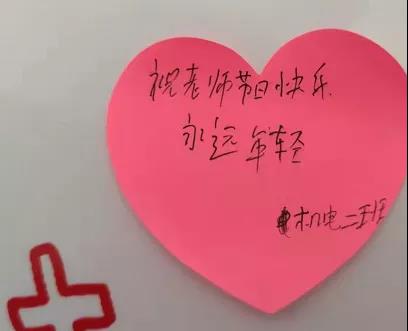 祝老师节日快乐
永远年轻
机电二班